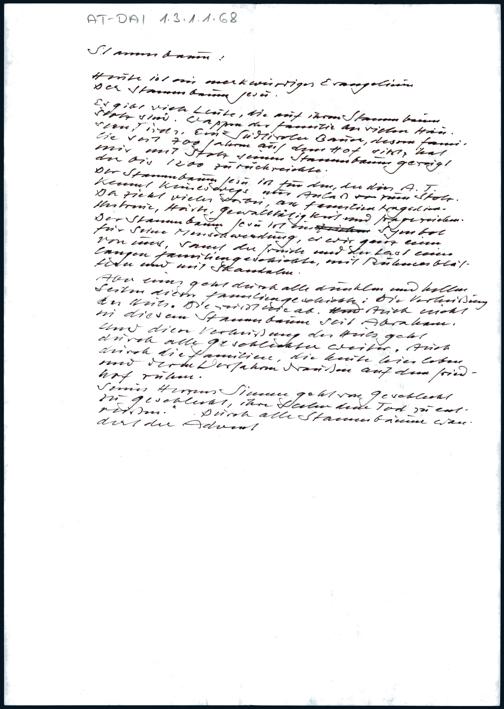 AT-DAI 1.3.1.1.68
Stammbaum:
Heute ist ein merkwürdiges Evangelium
Der Stammbaum Jesu.
Es gibt viele Leute, die auf ihren Stammbaum
stolz sind. Wappen der Familie an vielen Häu-
sern. Ein Südtiroler Bauer, dessen Fami-
lie seit 700 Jahren auf dem Hof sitzt, hat
mir mit Stolz seinen Stammbaum gezeigt
der bis 1200 zurückreichte.
Der Stammbaum Jesu ist für den, der das A.T.
kennt keineswegs nur Anlaß zum Stolz.
Da zieht vieles vorbei, an Familientragödien.
Hurerei, Härte, Gewalttätigkeit und
Der Stammbaum Jesu ist ein Symbol
für seine Menschwerdung, er wir ganz einer
von uns, samt der Freude und der Last einer
langen Familiengeschichte, mit Ruhmesblät-
tern und mit Skandalen.
Aber eines geht durch alle dunklen und hellen
Seiten dieser Familiengeschichte: Die Verheißung
des Heils. Die reißt nie ab. Auch nicht
in diesem Stammbaum seit Abraham.
Und diese Verheißung des Heils geht
durch alle Geschlechter weiter. Auch
durch die Familien, die heute hier leben
und deren Vorfahren draußen auf dem Fried-
hof ruhen.
Seines Herzens Sinnen geht von Geschlecht
zu Geschlecht, ihre Seelen dem Tod zu ent-
reißen." Durch alle Stammbäume wan-
dert der Advent